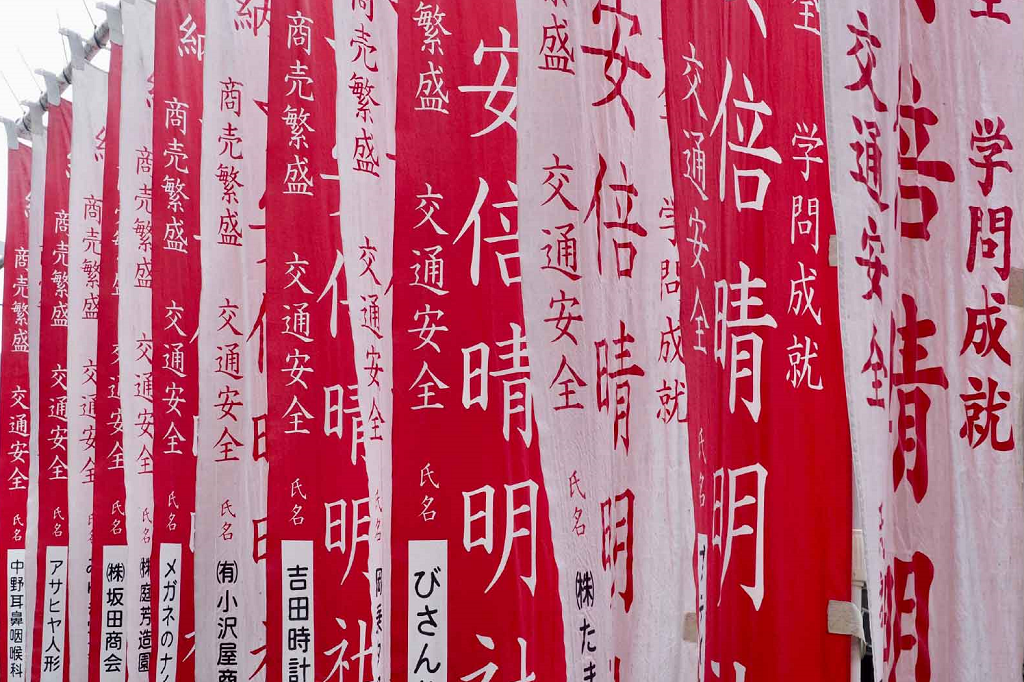 商売繁盛
交通安全
氏名
中野耳鼻咽喉科
商売繁盛
交通安全
氏名
アサヒヤ人形
商売繁盛
交通安全
交通安全
氏名
㈱坂田商会
商売繁盛
交通安全
氏名
㈱庭芳造園
納
商売繁盛
交通安全
氏名
メガネのナ
納
商売繁盛
交通安全
氏名
㈲小沢屋商
商売繁盛
交通安全
氏名
吉田時計
晴明社
商売繁盛
交通安全
繁盛
交通安全
氏名
びさん
安倍晴明社
盛
交通安全
氏名
㈱たま
安倍晴明
学問成就
交通安全
氏名
倍晴明
全
学問成就
交通安全
倍晴明
全
学問成就